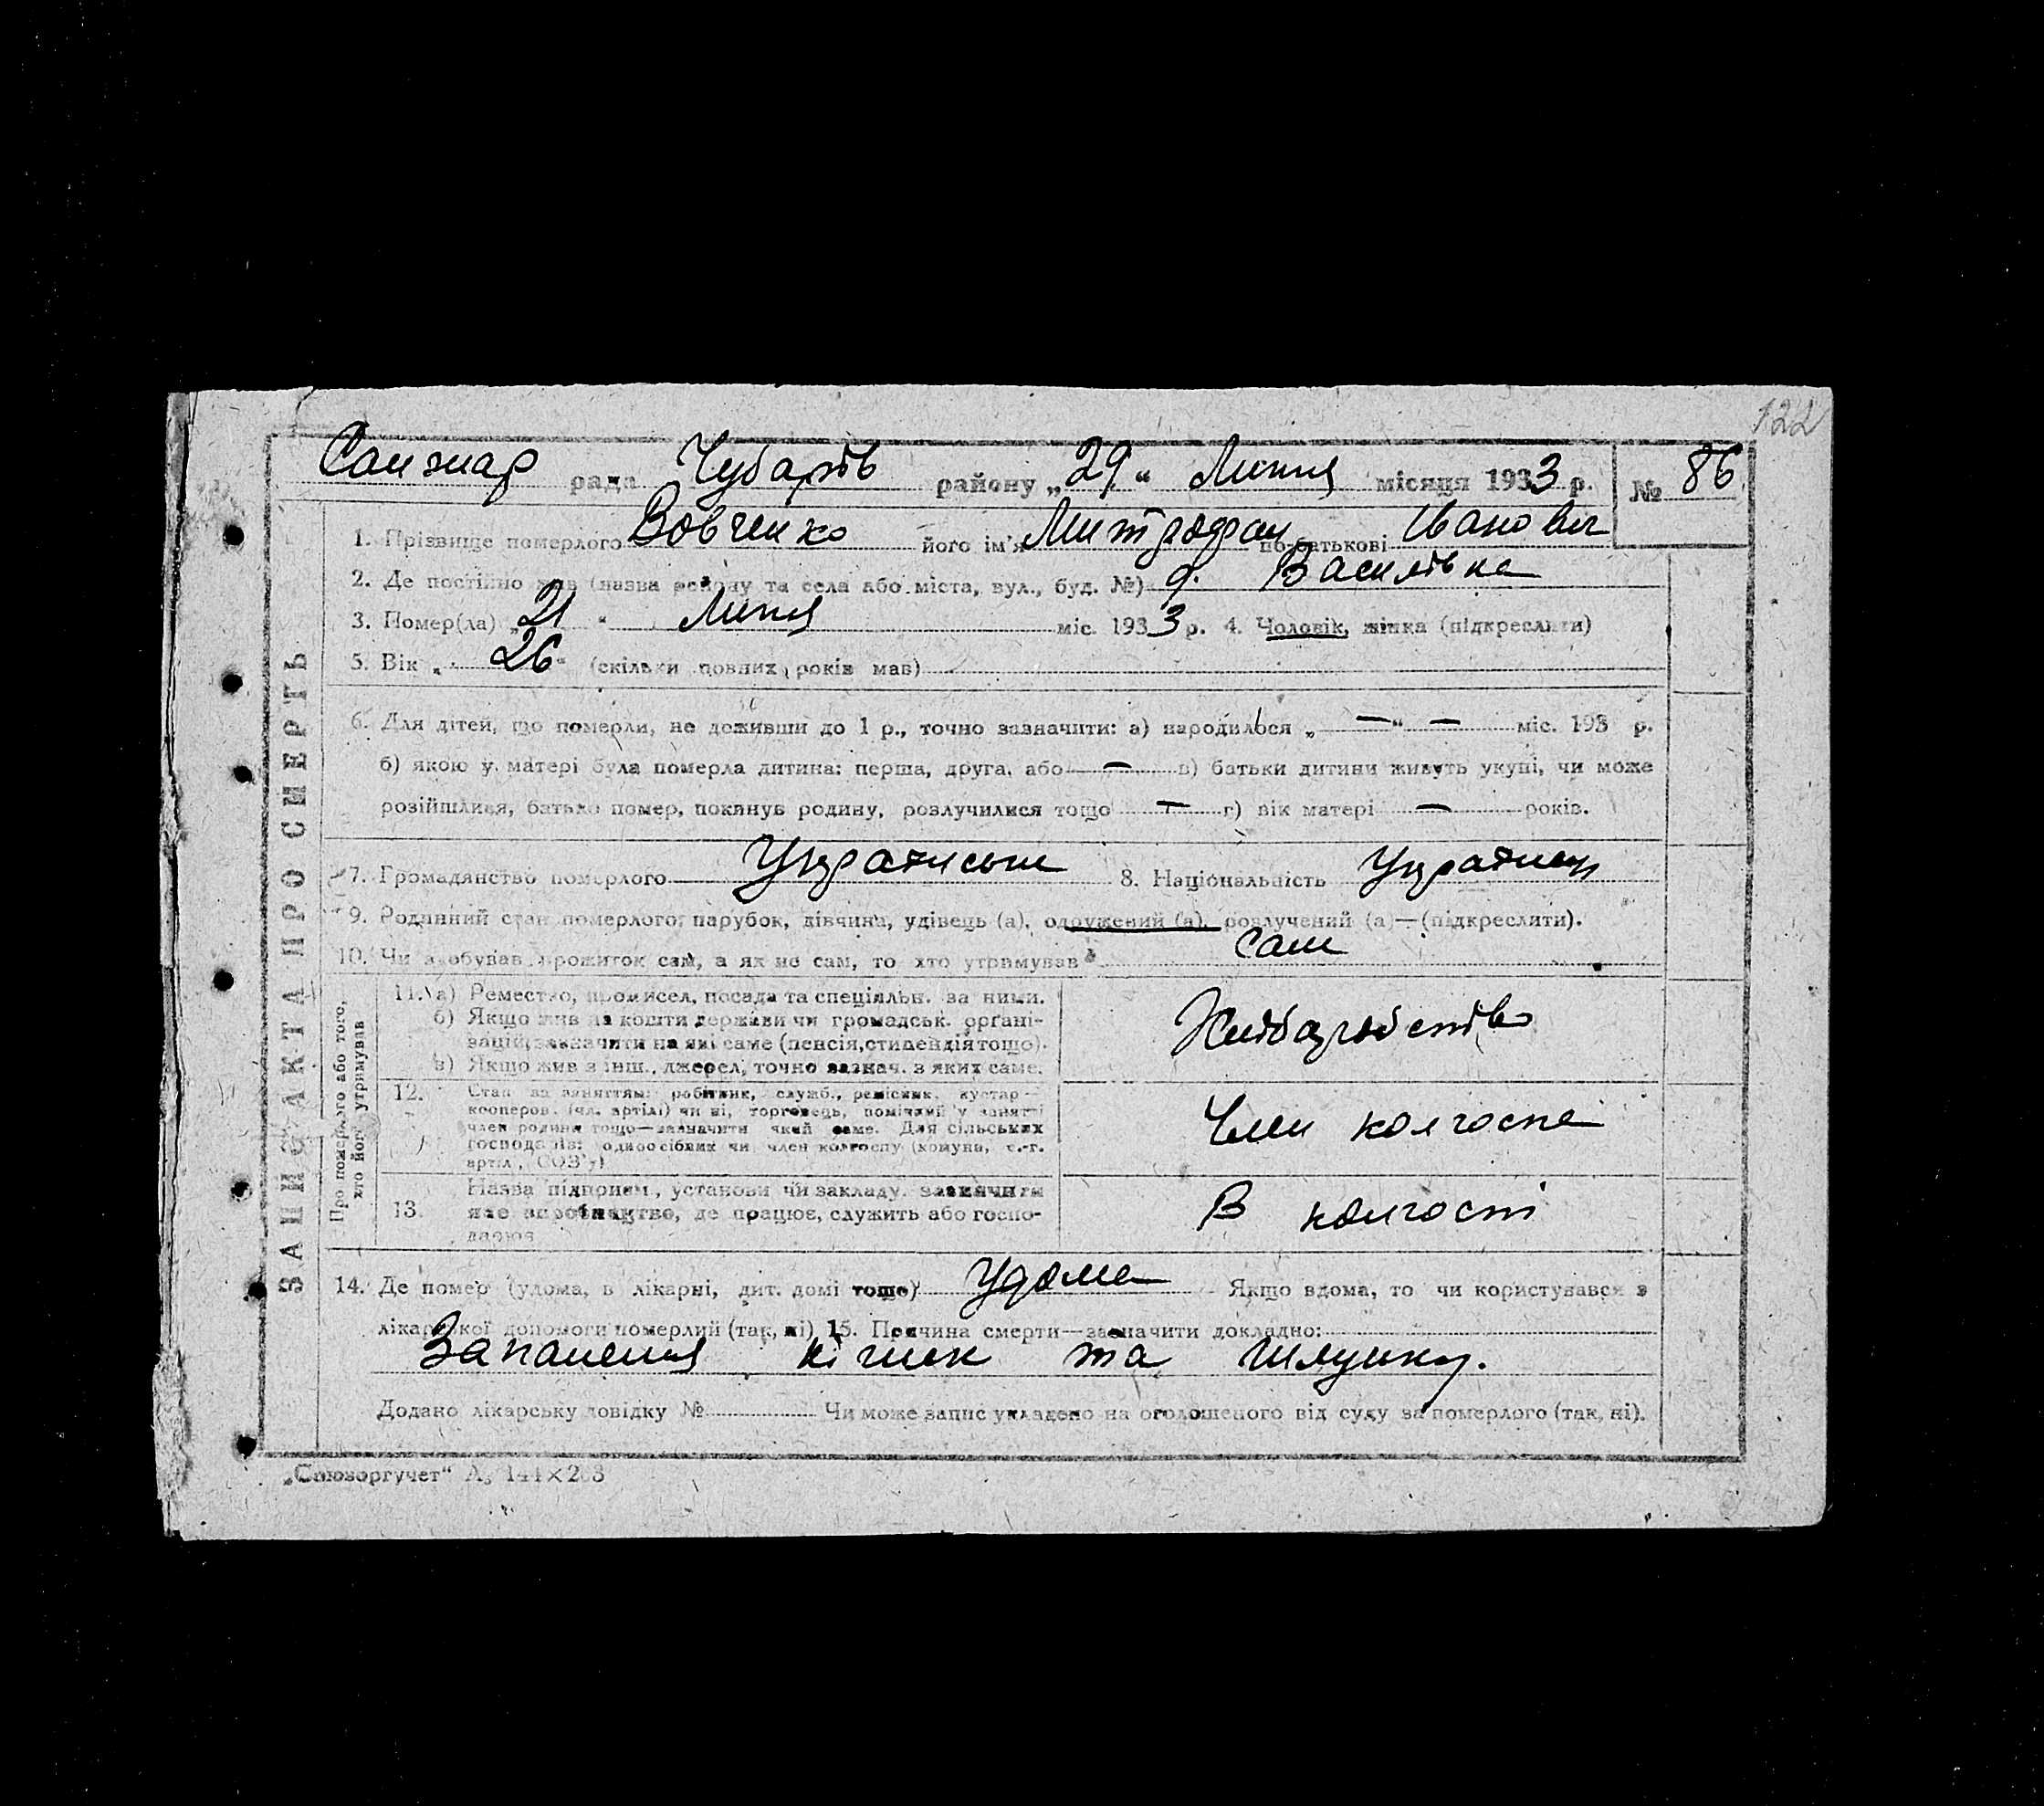 122
Санжар рада Чубарів району „29“ Липня місяця 1933 р. № 86
1. Прізвище померлого Вовченко його ім'я Митрофан по-батькові Іванович
2. Де постійно жив (назва району та села або міста, вул., буд. №) Василівка
3. Помер(ла) „21“ Липня міс. 1933 р. 4. Чоловік, жінка (підкреслити)
5. Вік „26“ (скільки повних років мав)
6. Для дітей, що померли, не доживши до 1 р., точно зазначити: а) народилься „—“ — міс. 193 р.
б) якою у матері була померла дитина: перша, друга, або — в) батьки дитини живуть укупі, чи може
розійшлися, батько помер, покинув родину, розлучилися тощо — г) вік матері — років.
7. Громадянство померлого 8. Національність
9. Родинний стан померлого: парубок, дівчина, удівець (а), одружений (а), розлучений (а) — (підкреслити).
10. Чи здобував прожиток сам, а як не сам, то хто утримував сам
ЗАПИС АКТА ПРО СМЕРТЬ
Про померлого або того, хто його утримував
11. а) Ремество, промисел, посада та спеціяльн. за ними.
б) Якщо жив на кошти держави чи громадськ. орґані-
зацій, зазначити на які саме (пенсія, стипендія тощо).
в) Якщо жив з інш. джерел, точно зазнач. з яких саме.
Хліборобство
12. Стан за заняттям: робітник, служб., ремісник, кустар—
кооперов. (чл. артілі) чи ні, торговець, помічний у занятті
член родини тощо—зазначити який саме. Для сільських
господарів: одноосібник чи член колгоспу (комуна, с.-г.
артіл., СОЗ'у)
Член колгоспа
13. Назва підприєм., установи чи закладу, зазначити
яке виробництво, де працює, служить або госпо-
дарює
В колгоспі
14. Де помер (удома, в лікарні, дит. домі тощо) Удома Якщо вдома, то чи користувався з
лікарської допомоги померлий (так, ні) 15. Причина смерти—зазначити докладно:
Запалення кишек та шлунку.
Додано лікарську довідку № Чи може запис укладено на оголошеного від суду за померлого (так, ні).
„Союзоргучет“